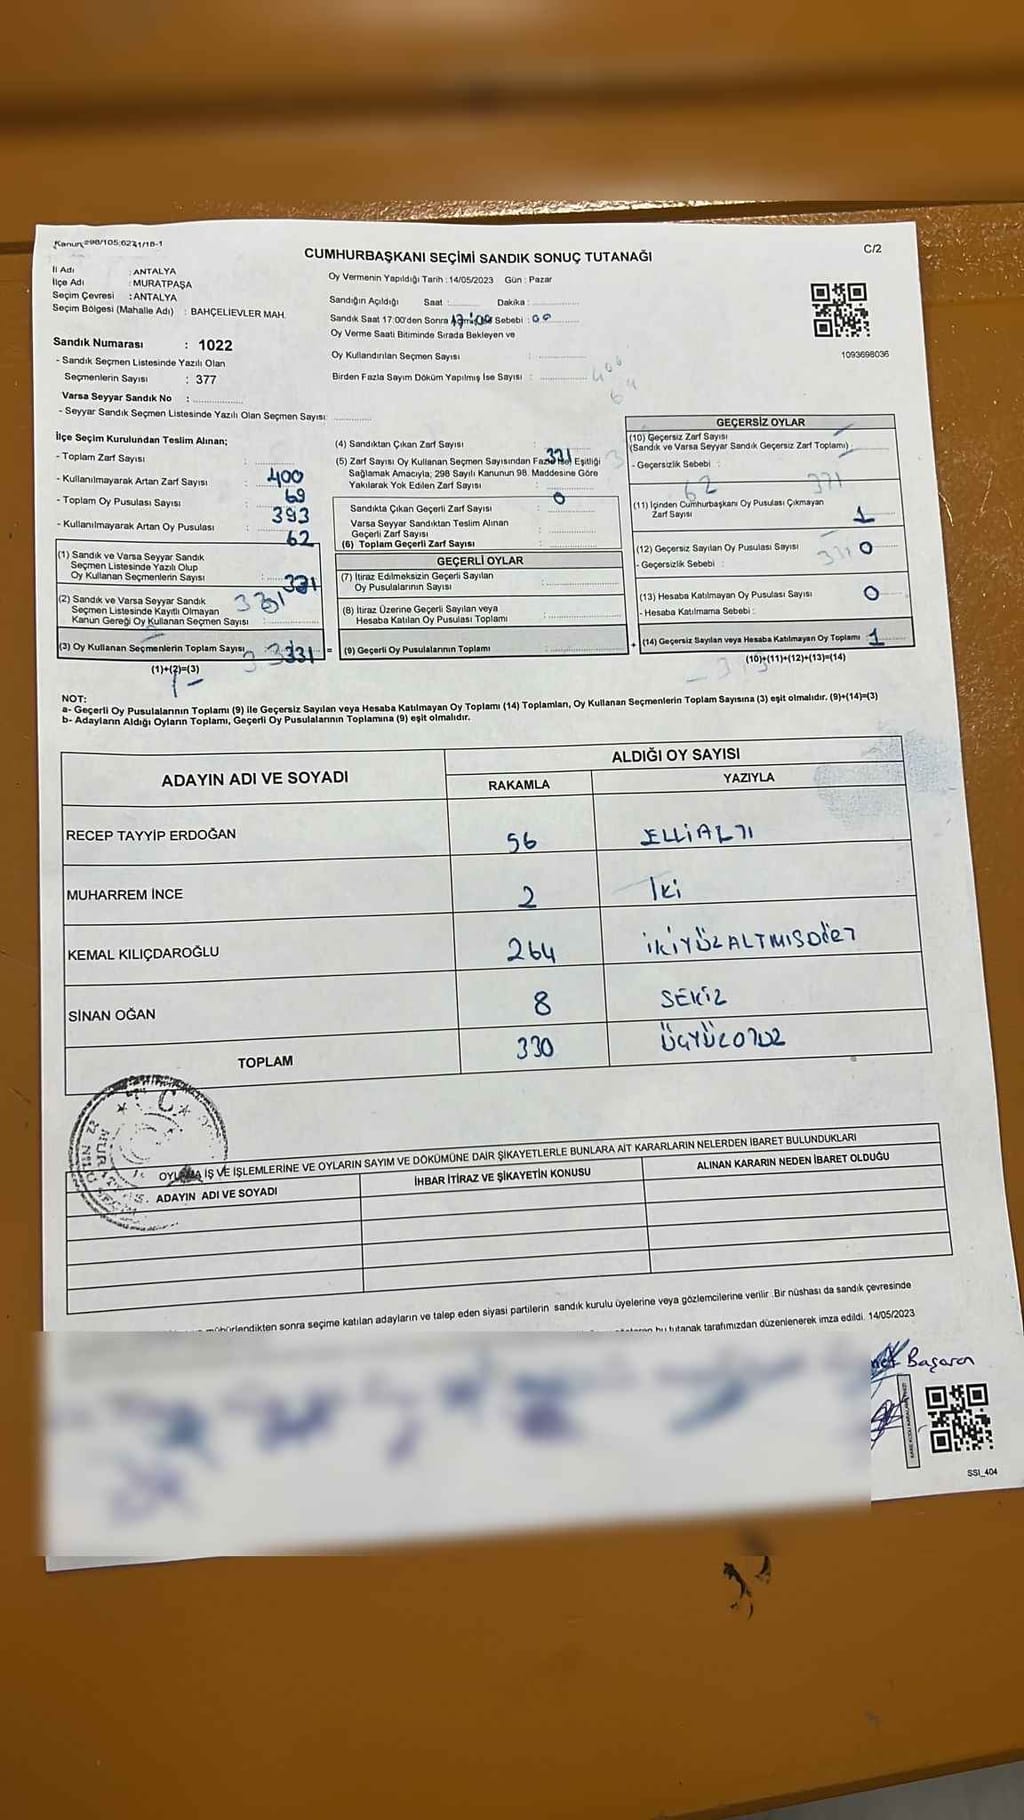 Kanun 298/105;62;71/18-1
C/2
CUMHURBAŞKANI SEÇİMİ SANDIK SONUÇ TUTANAĞI
İl Adı : ANTALYA
İlçe Adı : MURATPAŞA
Seçim Çevresi : ANTALYA
Seçim Bölgesi (Mahalle Adı) : BAHÇELİEVLER MAH.
Sandık Numarası : 1022
- Sandık Seçmen Listesinde Yazılı Olan
Seçmenlerin Sayısı : 377
Varsa Seyyar Sandık No :
- Seyyar Sandık Seçmen Listesinde Yazılı Olan Seçmen Sayısı:
Oy Vermenin Yapıldığı Tarih :14/05/2023 Gün : Pazar
Sandığın Açıldığı Saat : Dakika :
Sandık Saat 17:00'den Sonra 17:00 Sebebi : 00
Oy Verme Saati Bitiminde Sırada Bekleyen ve
Oy Kullandırılan Seçmen Sayısı :
Birden Fazla Sayım Döküm Yapılmış İse Sayısı :
1093698036
İlçe Seçim Kurulundan Teslim Alınan;
- Toplam Zarf Sayısı : 400
- Kullanılmayarak Artan Zarf Sayısı : 69
- Toplam Oy Pusulası Sayısı : 393
- Kullanılmayarak Artan Oy Pusulası : 62
(1) Sandık ve Varsa Seyyar Sandık
Seçmen Listesinde Yazılı Olup
Oy Kullanan Seçmenlerin Sayısı : 331
(2) Sandık ve Varsa Seyyar Sandık
Seçmen Listesinde Kayıtlı Olmayan
Kanun Gereği Oy Kullanan Seçmen Sayısı :
(3) Oy Kullanan Seçmenlerin Toplam Sayısı : 331 =
(1)+(2)=(3)
(4) Sandıktan Çıkan Zarf Sayısı : 331
(5) Zarf Sayısı Oy Kullanan Seçmen Sayısından Fazla ise, Eşitliği
Sağlamak Amacıyla; 298 Sayılı Kanunun 98. Maddesine Göre
Yakılarak Yok Edilen Zarf Sayısı : 0
Sandıkta Çıkan Geçerli Zarf Sayısı :
Varsa Seyyar Sandıktan Teslim Alınan
Geçerli Zarf Sayısı :
(6) Toplam Geçerli Zarf Sayısı :
GEÇERLİ OYLAR
(7) İtiraz Edilmeksizin Geçerli Sayılan
Oy Pusulalarının Sayısı :
(8) İtiraz Üzerine Geçerli Sayılan veya
Hesaba Katılan Oy Pusulası Toplamı :
(9) Geçerli Oy Pusulalarının Toplamı : +
GEÇERSİZ OYLAR
(10) Geçersiz Zarf Sayısı
(Sandık ve Varsa Seyyar Sandık Geçersiz Zarf Toplamı)
- Geçersizlik Sebebi :
(11) İçinden Cumhurbaşkanı Oy Pusulası Çıkmayan
Zarf Sayısı 1
(12) Geçersiz Sayılan Oy Pusulası Sayısı : 0
- Geçersizlik Sebebi :
(13) Hesaba Katılmayan Oy Pusulası Sayısı : 0
- Hesaba Katılmama Sebebi :
(14) Geçersiz Sayılan veya Hesaba Katılmayan Oy Toplamı : 1
(10)+(11)+(12)+(13)=(14)
NOT:
a- Geçerli Oy Pusulalarının Toplamı (9) ile Geçersiz Sayılan veya Hesaba Katılmayan Oy Toplamı (14) Toplamları, Oy Kullanan Seçmenlerin Toplam Sayısına (3) eşit olmalıdır. (9)+(14)=(3)
b- Adayların Aldığı Oyların Toplamı, Geçerli Oy Pusulalarının Toplamına (9) eşit olmalıdır.
ADAYIN ADI VE SOYADI
ALDIĞI OY SAYISI
RAKAMLA YAZIYLA
RECEP TAYYİP ERDOĞAN 56 ELLİALTI
MUHARREM İNCE 2 İki
KEMAL KILIÇDAROĞLU 264 İKİYÜZALTMISDÖRT
SİNAN OĞAN 8 SEKİZ
TOPLAM 330 ÜÇYÜZOTUZ
OYLAMA İŞ VE İŞLEMLERİNE VE OYLARIN SAYIM VE DÖKÜMÜNE DAİR ŞİKAYETLERLE BUNLARA AİT KARARLARIN NELERDEN İBARET BULUNDUKLARI
ADAYIN ADI VE SOYADI İHBAR İTİRAZ VE ŞİKAYETİN KONUSU ALINAN KARARIN NEDEN İBARET OLDUĞU
mühürlendikten sonra seçime katılan adayların ve talep eden siyasi partilerin sandık kurulu üyelerine veya gözlemcilerine verilir .Bir nüshası da sandık çevresinde
bu tutanak tarafımızdan düzenlenerek imza edildi. 14/05/2023
Başaran
SSI_404